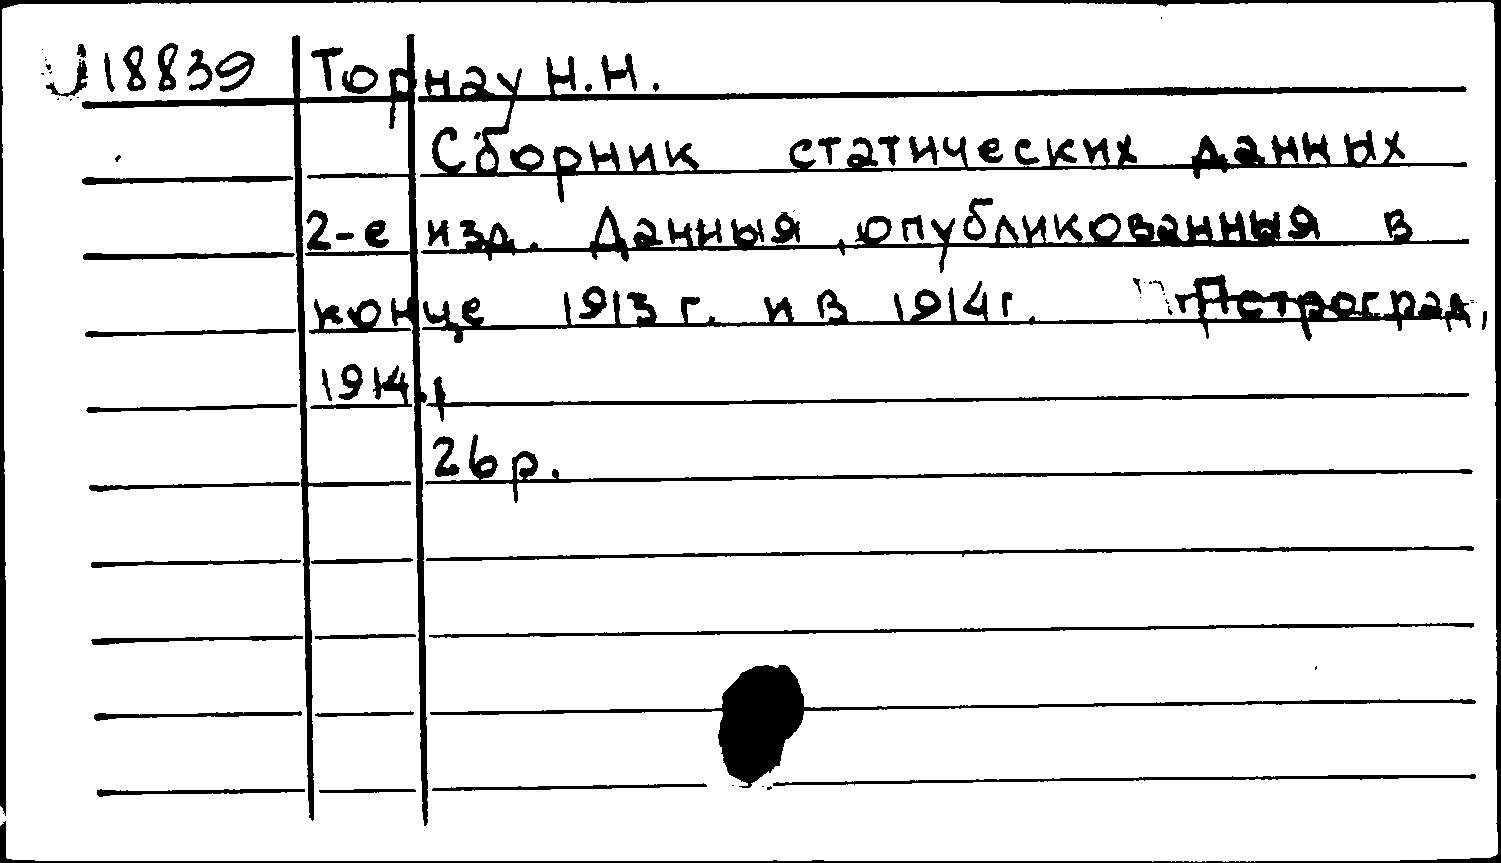 U18839 Торнау Н.Н.
Сборник статических данных
2-е изд. Данныя, опубликованныя в
конце 1913 г. и в 1914 г. Петроград,
1914.,
26 p.